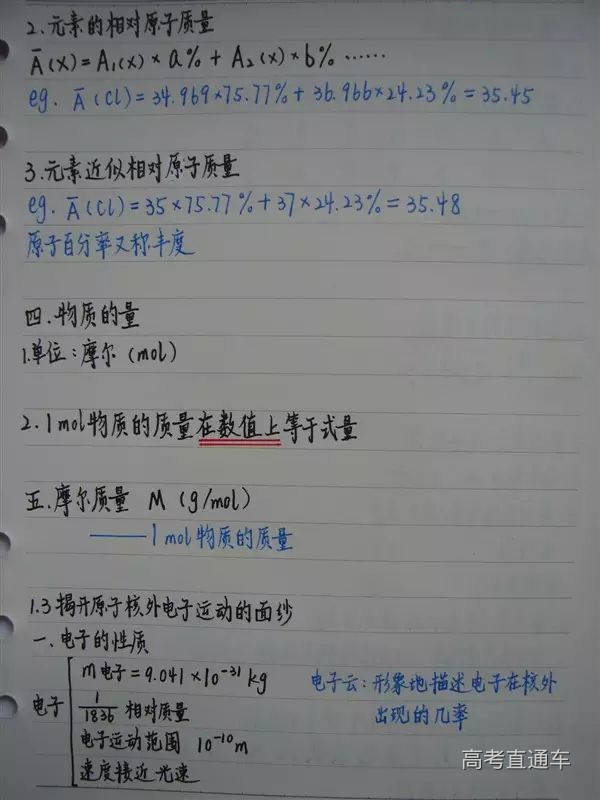 2.元素的相对原子质量
Ā(X)=A₁(X)×a%+A₂(X)×b%……
eg. Ā(Cl)=34.969×75.77%+36.966×24.23%=35.45
3.元素近似相对原子质量
eg. Ā(Cl)=35×75.77%+37×24.23%=35.48
原子百分率又称丰度
四.物质的量
1.单位:摩尔(mol)
2.1mol物质的质量在数值上等于式量
五.摩尔质量 M(g/mol)
——1mol物质的质量
1.3揭开原子核外电子运动的面纱
一.电子的性质
电子
m电子=9.041×10⁻³¹kg
1/1836 相对质量
电子运动范围 10⁻¹⁰m
速度接近光速
电子云:形象地描述电子在核外
出现的几率
高考直通车